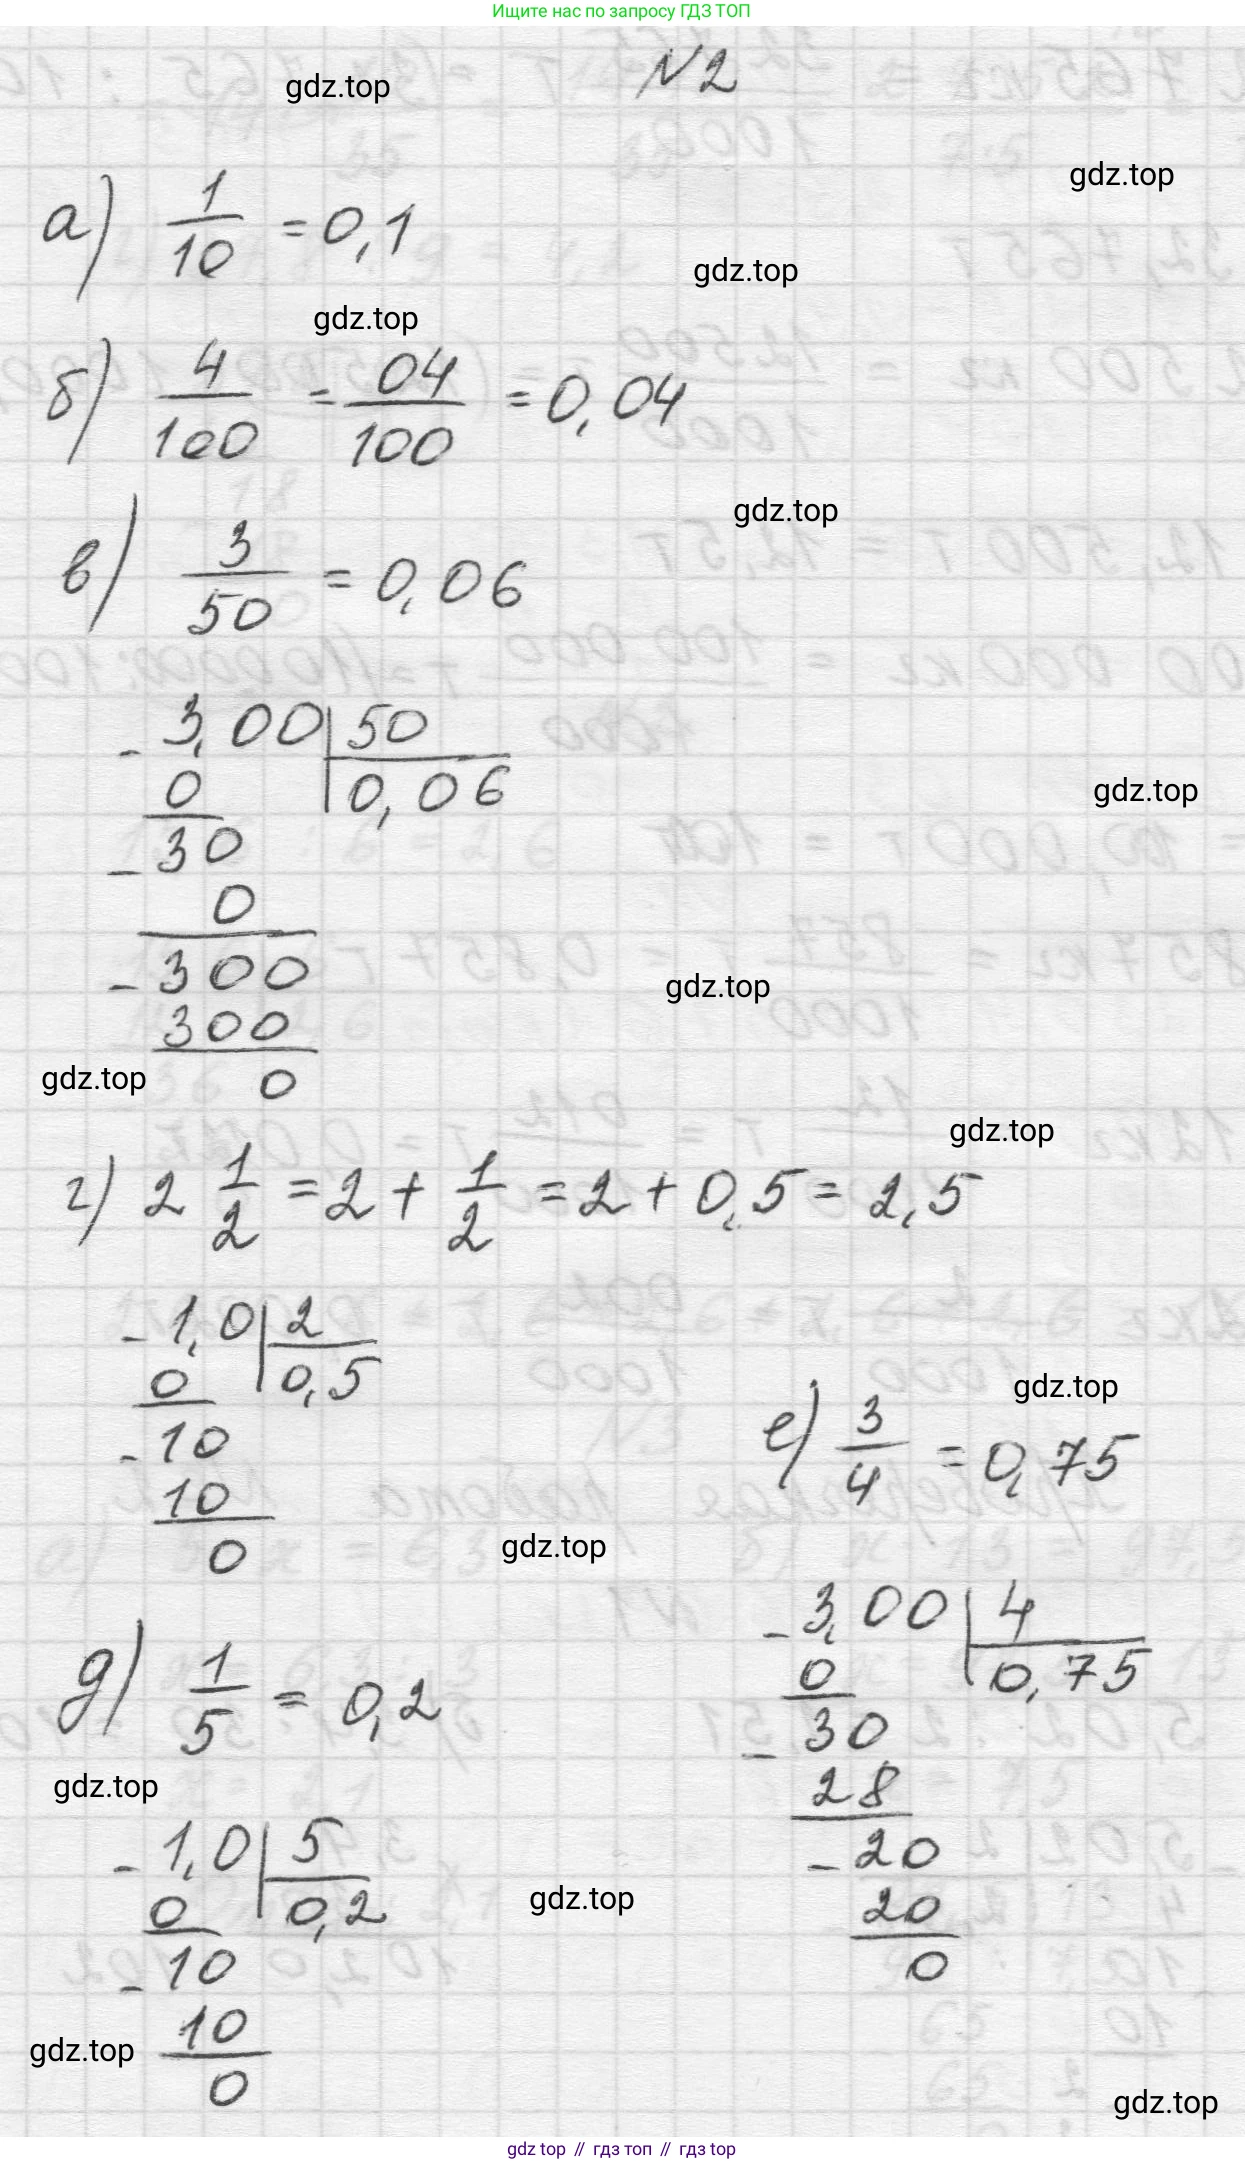 Ищите нас по запросу ГДЗ ТОП
N2
gdz.top
gdz.top
а) 1/10 = 0,1
gdz.top
gdz.top
б) 4/100 = 04/100 = 0,04
gdz.top
в) 3/50 = 0,06
- 3,00 | 50
0 | 0,06
gdz.top
- 30
0
- 300
gdz.top
300
0
gdz.top
gdz.top
г) 2 1/2 = 2 + 1/2 = 2 + 0,5 = 2,5
- 1,0 | 2
0 | 0,5
- 10
10
0
gdz.top
д) 1/5 = 0,2
gdz.top
- 1,0 | 5
0 | 0,2
- 10
10
0
gdz.top
gdz.top
е) 3/4 = 0,75
- 3,00 | 4
0 | 0,75
- 30
28
- 20
20
0
gdz.top
gdz.top
gdz top // гдз топ // гдз top